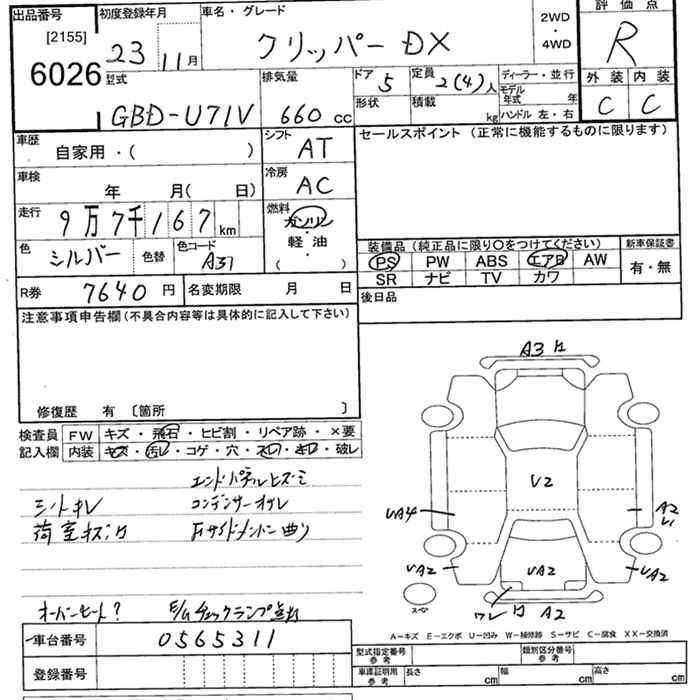 出品番号 初度登録年月 車名・グレード 2WD・4WD 評価点
[2155] 6026
23 11月 クリッパー DX R
型式 排気量 ドア 定員 ディーラー・並行 外装 内装
GBD-U71V 660cc 5 2(4)人 モデル年式 年 C C
形状 積載 kg ハンドル 左・右
車歴 シフト セールスポイント (正常に機能するものに限ります)
自家用・( ) AT
車検 冷房
年 月( 日) AC
走行 燃料
9万7千167km ガソリン・軽油・( )
色 色替 色コード 装備品 (純正品に限り○をつけてください) 新車保証書
シルバー A31 PS PW ABS エアB AW 有・無
SR ナビ TV カワ
R券 7640円 名変期限 月 日 後日品
注意事項申告欄 (不具合内容等は具体的に記入して下さい)
A3
修復歴 有 〔箇所 〕
検査員記入欄 FW キズ・飛石・ヒビ割・リペア跡・×要
内装 キズ・汚レ・コゲ・穴・スレ・キレ・破レ
エンドパネルヒズミ
V2
シートキレ コンデンサーオサレ
UA4 A2
荷室キズ Fサイドメンバー曲り
UA2 UA2 UA2
スペア ワレ A2
オーバーヒート? E/Gチェックランプ点灯
A-キズ E-エクボ U-凹み W-補修跡 S-サビ C-腐食 XX-交換済
車台番号 0565311
型式指定番号 参考 類別区分番号 参考
登録番号 車庫証明用 参考 長さ cm 幅 cm 高さ cm